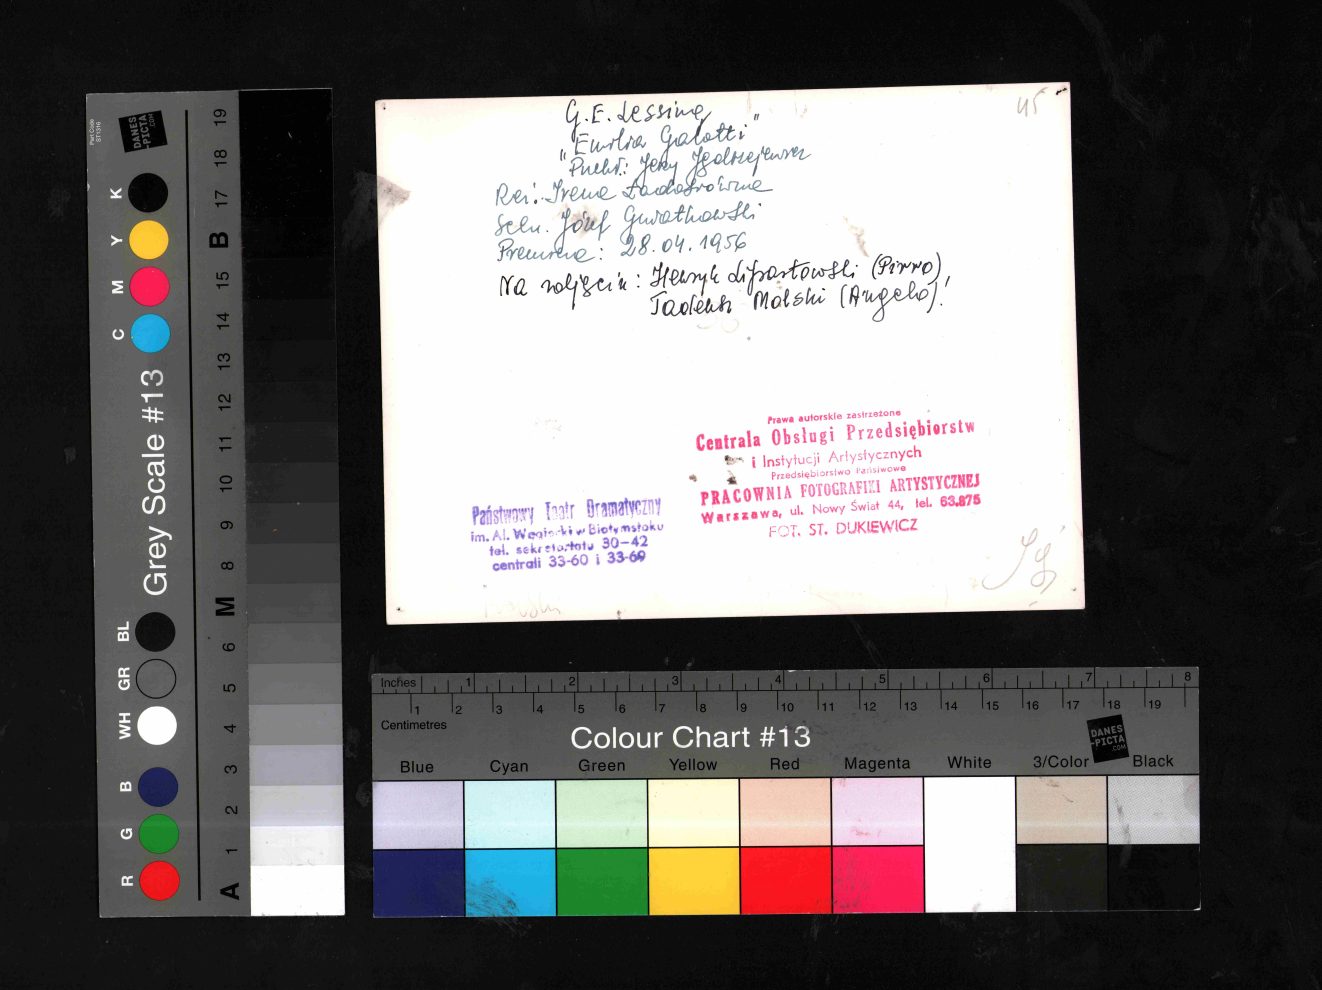 G.E. Lessing
"Emilia Galotti"
Przekł. Jerzy Jędrzejewicz
Reż. Irena Ładosiówna
Scen. Józef Gwiatkowski
Premiera: 28.04.1956
Na zdjęciu: Henryk (Pirro),
Tadeusz Malski (Angelo).
45
Prawa autorskie zastrzeżone
Centrala Obsługi Przedsiębiorstw
i Instytucji Artystycznych
Przedsiębiorstwo Państwowe
PRACOWNIA FOTOGRAFIKI ARTYSTYCZNEJ
Warszawa, ul. Nowy Świat 44, tel. 63.875
FOT. ST. DUKIEWICZ
Państwowy Teatr Dramatyczny
im. Al. Węgierki w Białymstoku
tel. sekretariatu 30-42
centrali 33-60 i 33-69
Part Code
ST1316
DANES
-PICTA
.COM
Grey Scale #13
K Y M C
BL GR WH B G R
19 18 17 B 15 14 13 12 11 10 9 8 M 6 5 4 3 2 1 A
Inches 1 2 3 4 5 6 7 8
1 2 3 4 5 6 7 8 9 10 11 12 13 14 15 16 17 18 19
Centimetres
Colour Chart #13
DANES
-PICTA
.COM
Blue Cyan Green Yellow Red Magenta White 3/Color Black